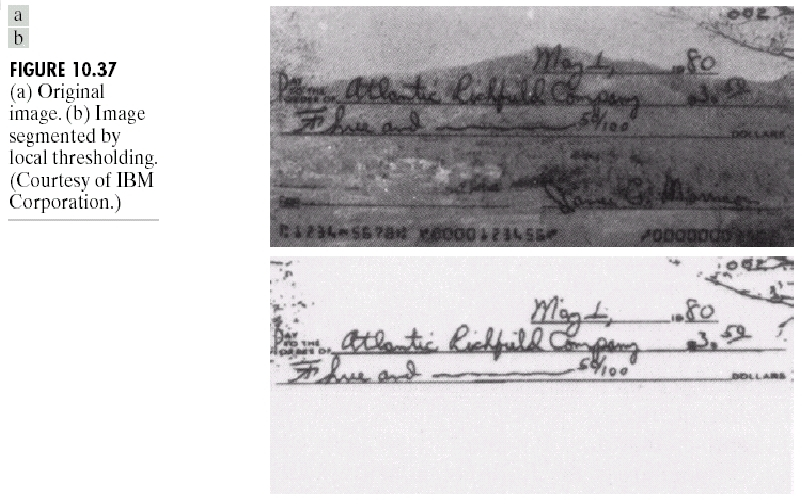 a
b
FIGURE 10.37
(a) Original
image. (b) Image
segmented by
local thresholding.
(Courtesy of IBM
Corporation.)
002
May 1, 80
PAY
TO THE
ORDER OF Atlantic Richfield Company 3.50
Three and 50/100
DOLLARS
002
May 1, 80
PAY
TO THE
ORDER OF Atlantic Richfield Company 3.50
Three and 50/100
DOLLARS